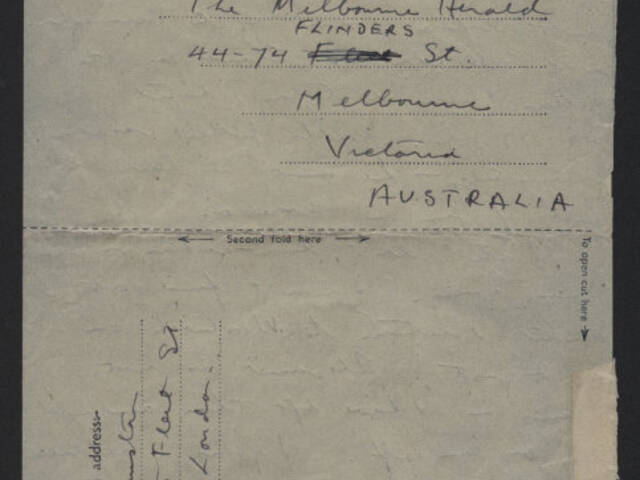 The Melbourne Herald
FLINDERS
44-74 Fleet St.
Melbourne
Victoria
AUSTRALIA
← Second fold here →
To open cut here →
address
Fleet St
London.